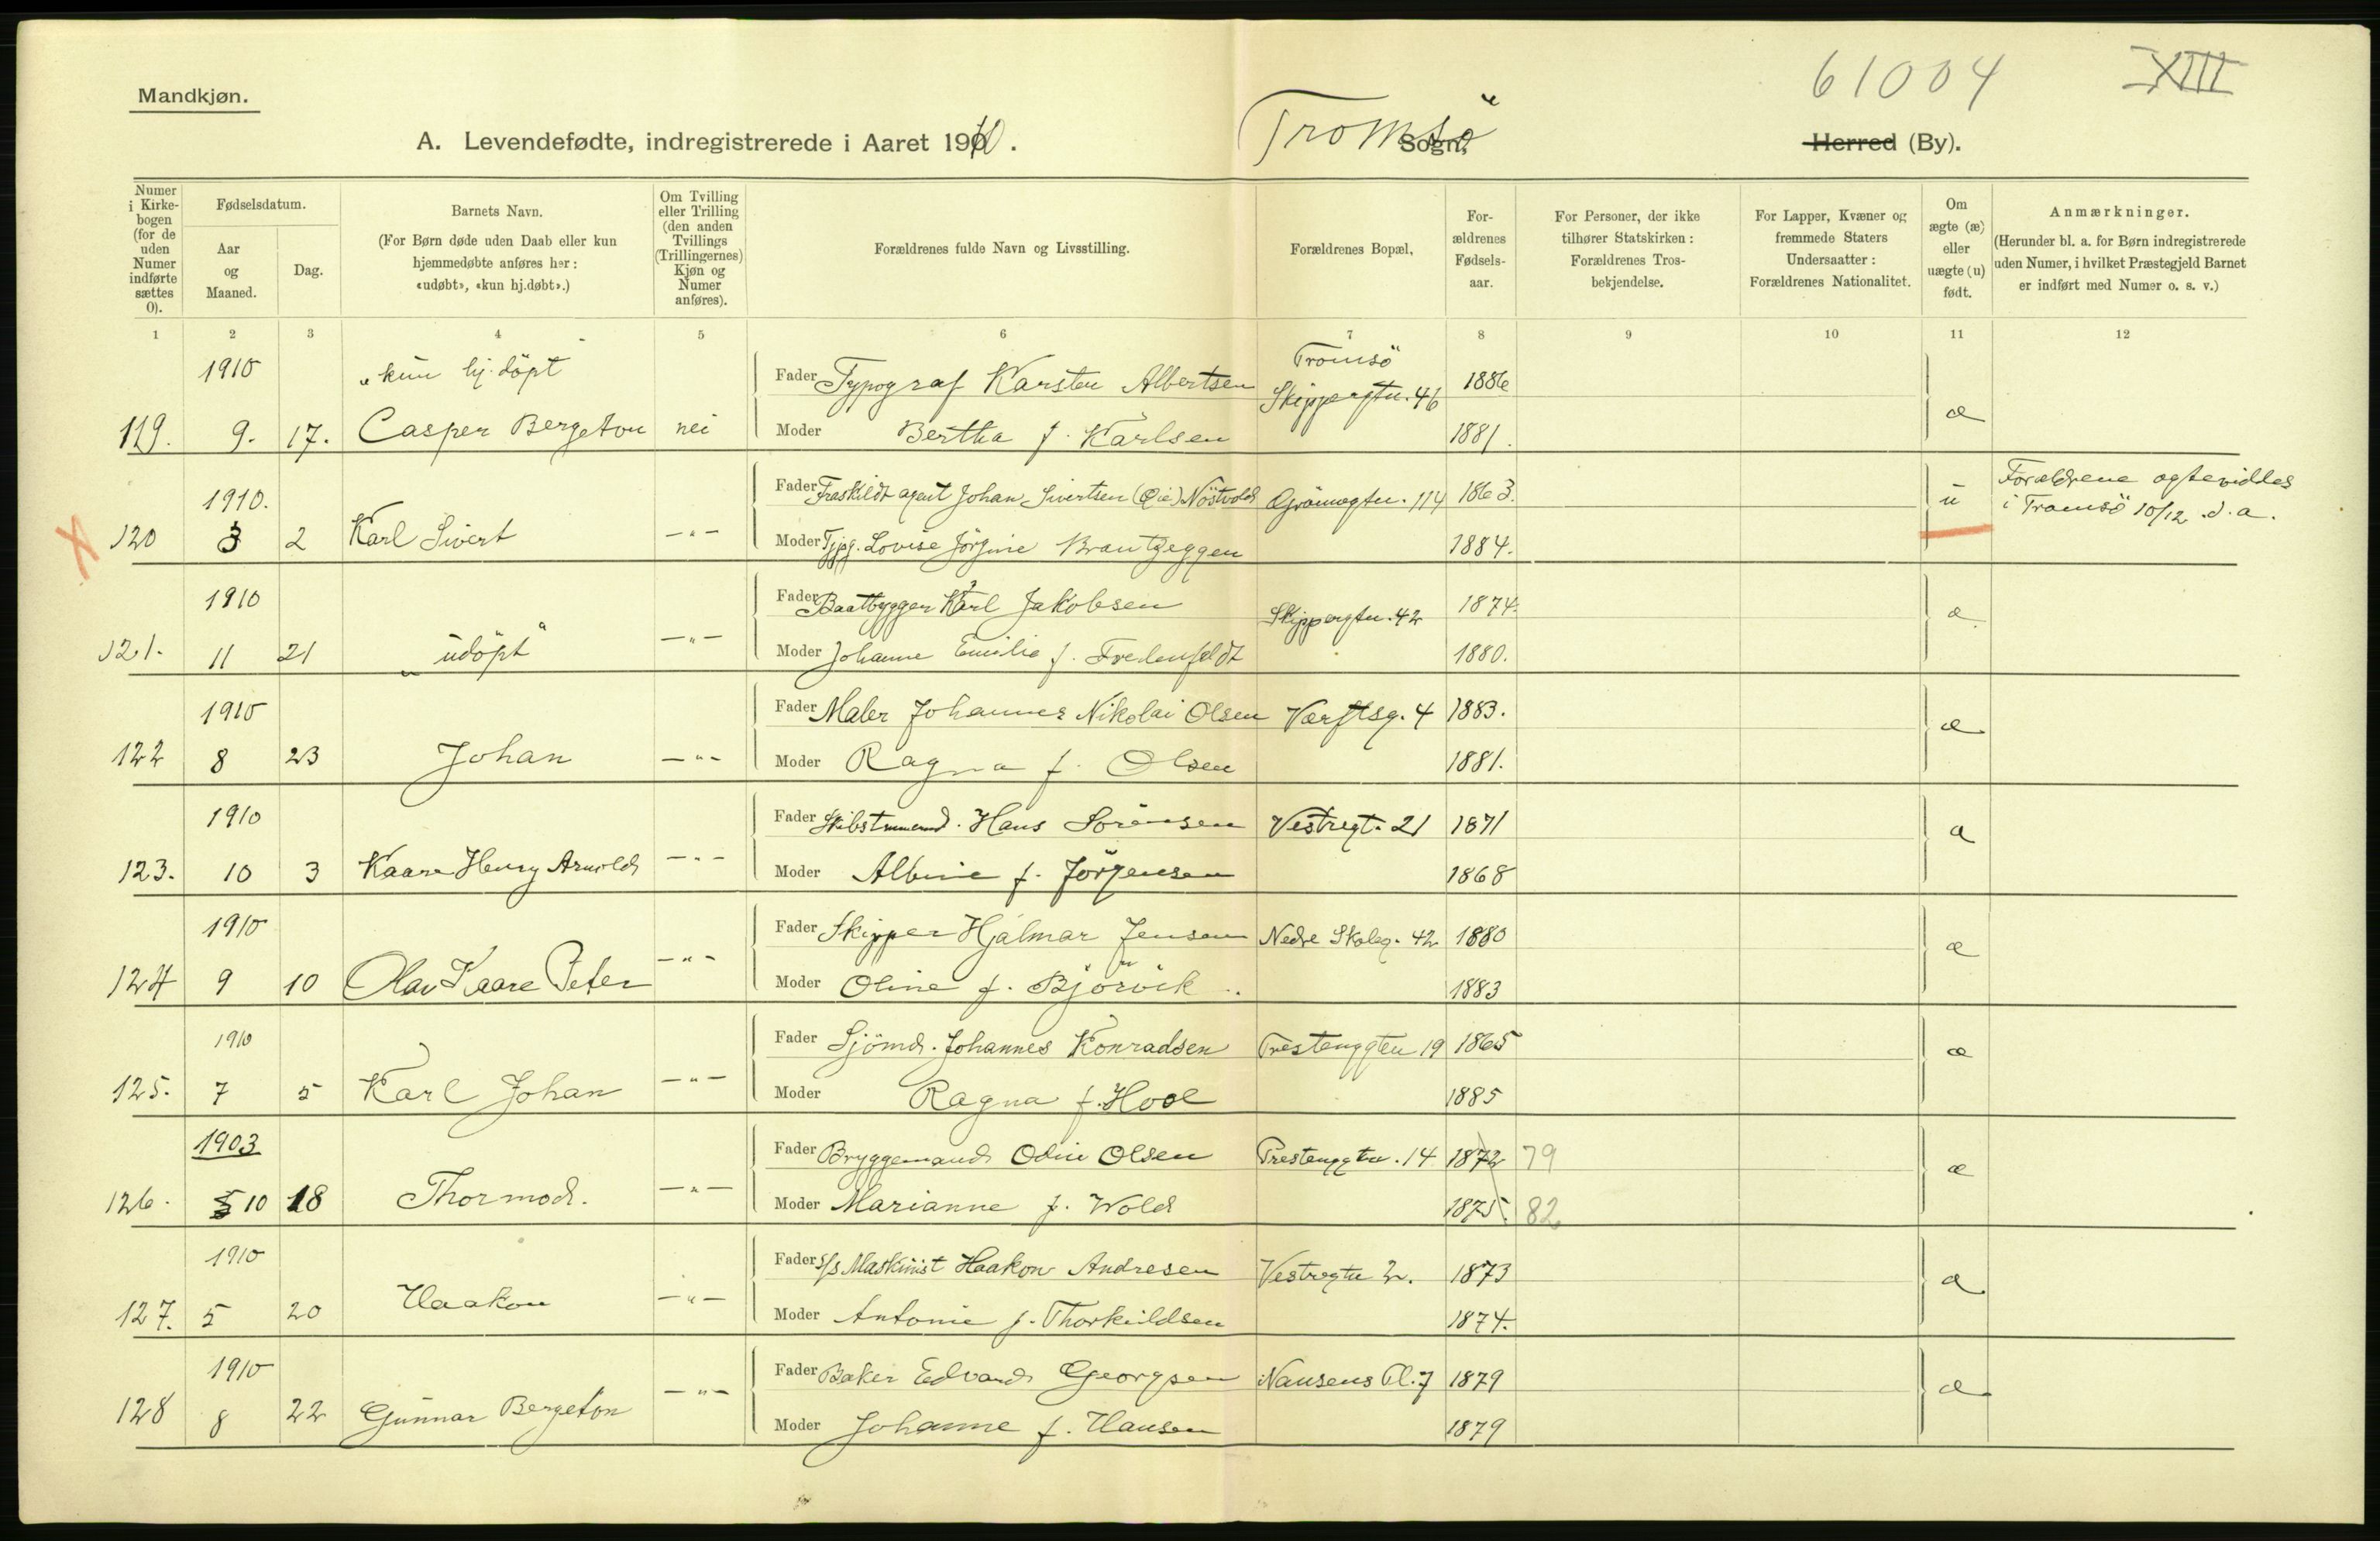 61004 XIII
Mandkjøn.
A. Levendefødte, indregistrerede i Aaret 1910. Tromsö Sogn, Herred (By).
Numer i Kirkebogen (for de uden Numer indførte sættes 0).
Fødselsdatum.
Aar og Maaned.
Dag.
Barnets Navn.
(For Børn døde uden Daab eller kun hjemmedøbte anføres her: «udøbt», «kun hj.døbt».)
Om Tvilling eller Trilling (den anden Tvillings (Trillingernes) Kjøn og Numer anføres).
Forældrenes fulde Navn og Livsstilling.
Forældrenes Bopæl,
For-ældrenes Fødsels-aar.
For Personer, der ikke tilhører Statskirken: Forældrenes Tros-bekjendelse.
For Lapper, Kvæner og fremmede Staters Undersaatter: Forældrenes Nationalitet.
Om ægte (æ) eller uægte (u) født.
Anmærkninger.
(Herunder bl. a. for Børn indregistrerede uden Numer, i hvilket Præstegjeld Barnet er indført med Numer o. s. v.)
1 2 3 4 5 6 7 8 9 10 11 12
1910 "kun hj. döpt" Fader Typograf Karsten Albertsen Tromsö Skippergtn. 46 1886 æ
119. 9. 17. Casper Bergeton nei Moder Bertha f. Karlsen 1881.
1910. Fader Fraskildt agent Johan Sivertsen (Øie) Nöstvold Grönnegtn. 114 1863. u Forældrene ægteviddes
i Tromsö 10/12 d. a.
120 3 2 Karl Sivert -"- Moder Tjpg. Lovise Jörgine Brantzeggen 1884.
1910 Fader Baatbygger Karl Jakobsen Skippergtn. 42 1874. æ
121. 11 21 "udöpt" -"- Moder Johanne Emilie f. Fredenfeldt 1880.
1910 Fader Maler Johannes Nikolai Olsen Værftsg. 4 1883. æ
122 8 23 Johan -"- Moder Ragna f. Olsen 1881.
1910 Fader Skibstmmermd. Hans Sörensen Vestregt. 21 1871 æ
123. 10 3 Kaare Henry Arnold -"- Moder Albine f. Jörgensen 1868
1910 Fader Skipper Hjalmar Jensen Nedre Skoleg. 42 1880 æ
124 9 10 Olav Kaare Peter -"- Moder Oline f. Björvik 1883
1910 Fader Sjömd. Johannes Konradsen Prestenggtn 19 1865 æ
125. 7 5 Karl Johan -"- Moder Ragna f. Hool 1885
1903 Fader Bryggemand Odin Olsen Prestenggtn. 14 1872 79 æ
126. 5 10 18 Thormod. -"- Moder Marianne f. Wold 1875. 82
1910 Fader S/s Maskinist Haakon Andresen Vestregtn 2. 1873 æ
127. 5 20 Haakon -"- Moder Antonie f. Thorkildsen 1874.
1910 Fader Baker Edvard Georgsen Nansens Pl. 7 1879 æ
128 8 22 Gunnar Bergeton -"- Moder Johanne f. Hansen 1879